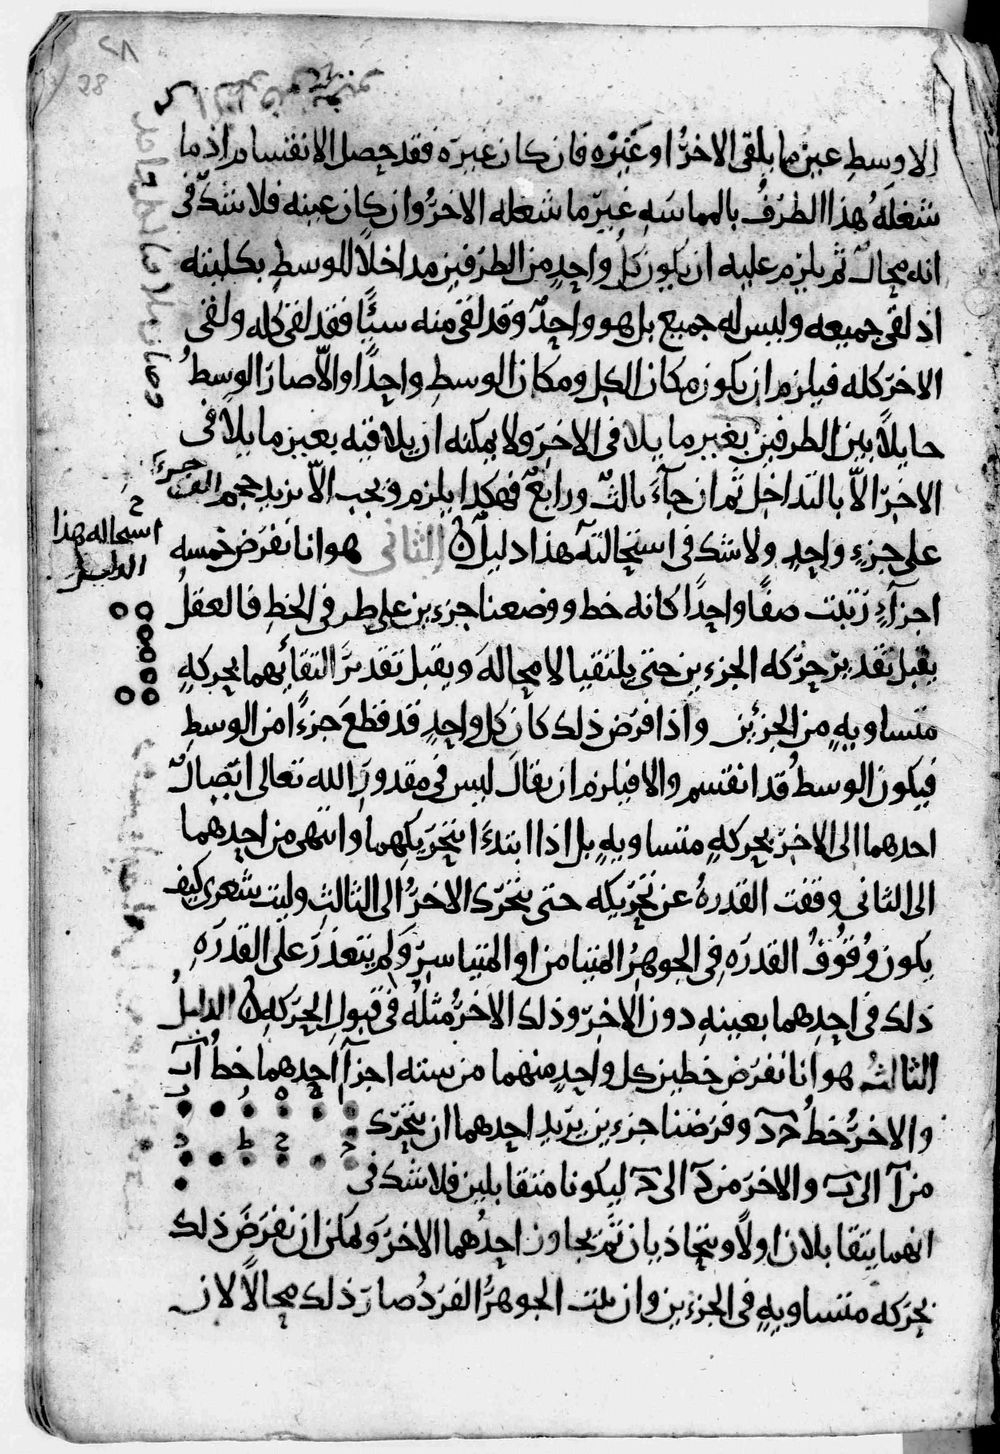 28
الاوسط عين ما يلقى الاخر او غيره فان كان غيره فقد حصل الانقسام اذ ما
شغله هذا الطرف بالمماسه غير ما شغله الاخر وان كان عينه فلا شك فى
انه محال ثم يلزم عليه ان يكون كل واحد من الطرفين مداخلا للوسط بكليته
اذ لقى جميعه وليس له جميع بل هو واحد وقد لقى منه شيئا فقد لقى كله ولقى
الاخر كله فيلزم ان يكون مكان الكل ومكان الوسط واحدا والا صار الوسط
حايلا بين الطرفين بغير ما يلاقى الاخر ولا يمكنه ان يلاقيه بعين ما يلاقى
الاخر الا بالتداخل ثم ان جاء ثالث ورابع فهكذا يلزم ويجب الا يزيد حجم الف جزء
على جزء واحد ولا شك فى استحالته هذا دليل الثانى هو انا نفرض خمسه
استحاله هذا
الدليل
اجزاء رتبت صفا واحدا كانه خط ووضعنا جزءين على طرفى الخط فالعقل
يقبل تقدير حركه الجزءين حتى يلتقيا لا محاله ويقبل تقدير التقائهما بحركه
متساويه من الجزئين واذا فرض ذلك كان كل واحد قد قطع جزءا من الوسط
فيكون الوسط قد انقسم والا فيلزم ان يقال ليس فى مقدور الله تعالى ايصال
احدهما الى الاخر بحركه متساويه بل اذا ابتدء بتحريكهما وانتهى من احدهما
الى الثانى وقفت القدرة عن تحريكه حتى يتحرك الاخر الى الثالث وليت شعرى كيف
يكون وقوف القدره فى الجوهر المتيامن او المتياسر ولم يتعذر على القدره
ذلك فى احدهما بعينه دون الاخر وذلك الاخر مثله فى قبول الحركه الدليل
الثالث هو انا نفرض خطين كل واحد منهما من سته اجزآ احدهما خط آب
والاخر خط حد وفرضنا جزءين يريد احدهما ان يتحرك
من آ الى ب والاخر من د الى ح ليكونا متقابلين فلا شك فى
انهما يتقابلان اولا ويتحاذيان ثم يجاوز احدهما الاخر ولمكن ان نفرض ذلك
بحركه متساويه فى الجزءين وان ثبت الجوهر الفرد صار ذلك محالا لان